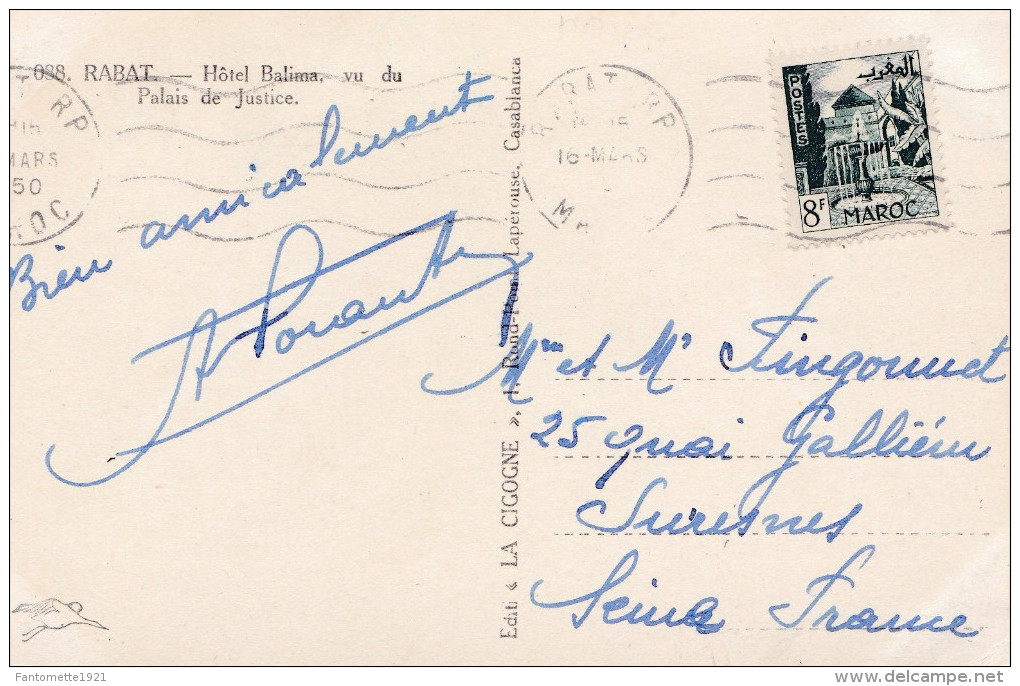 088. RABAT. — Hôtel Balima, vu du
Palais de Justice.
RP
15
MARS
50
MAROC
RABAT RP
15
16-MARS
POSTES
المغرب
8F MAROC
Bien amicalement
Editi « LA CIGOGNE », 1, Rond-Point Lapérouse, Casablanca
Mme et Mr Fingonnet
25 Quai Galliéni
Suresnes
Seine France
Fantomette1921
delcampe.net